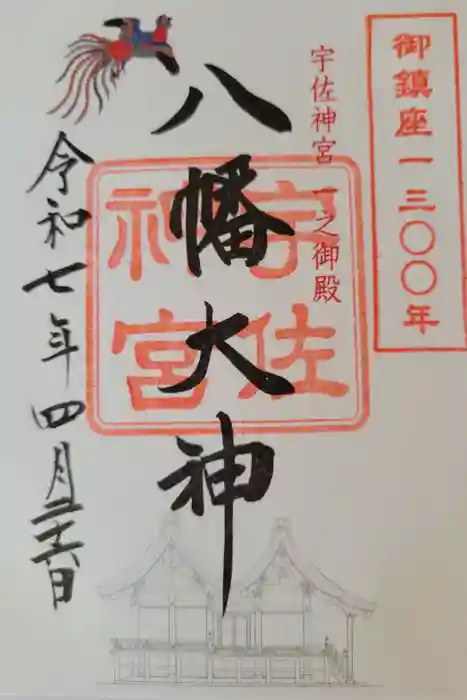 御鎮座一三〇〇年
宇佐神宮 一之御殿
八幡大神
宇佐
神宮
令和七年四月二十六日